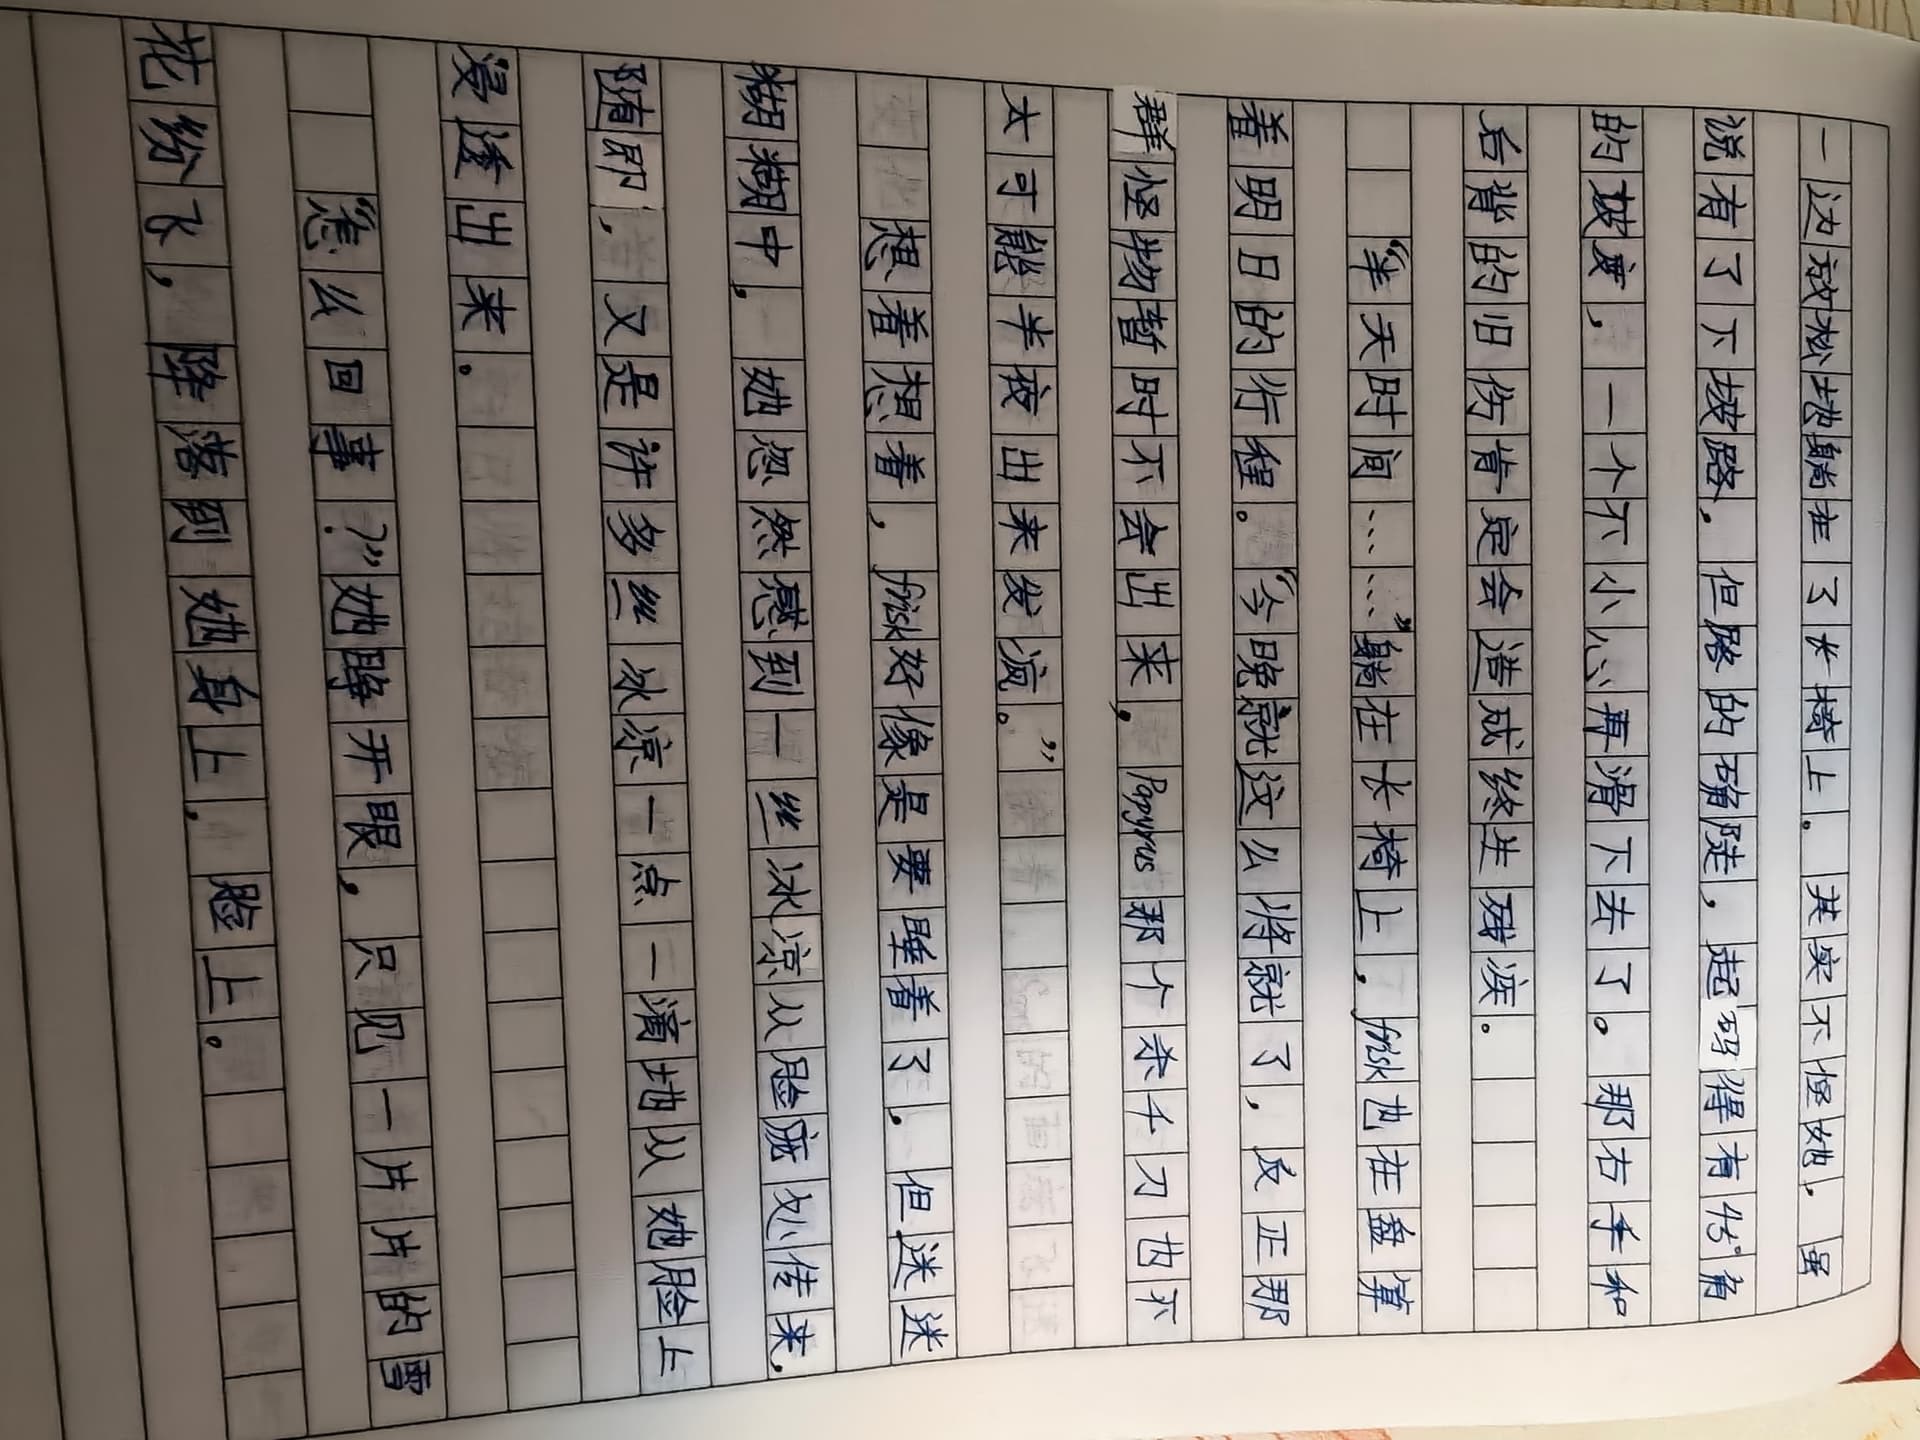 一边放松地躺在了长椅上。其实不怪她，虽
说有了下坡路，但路的确陡，起码得有45°角
的坡度，一个不小心再滑下去了。那右手和
后背的旧伤肯定会造成终生残疾。
“半天时间……”躺在长椅上，frisk也在盘算
着明日的行程。“今晚就这么将就了，反正那
群怪物暂时不会出来，Papyrus那个杀千刀也不
太可能半夜出来发疯。”
想着想着，frisk好像是要睡着了，但迷迷
糊糊中，她忽然感到一丝冰凉从脸庞划传来，
随即，又是许多丝冰凉一点一滴地从她脸上
浸透出来。
“怎么回事？”她睁开眼，只见一片片的雪
花纷飞，降落到她身上，脸上。